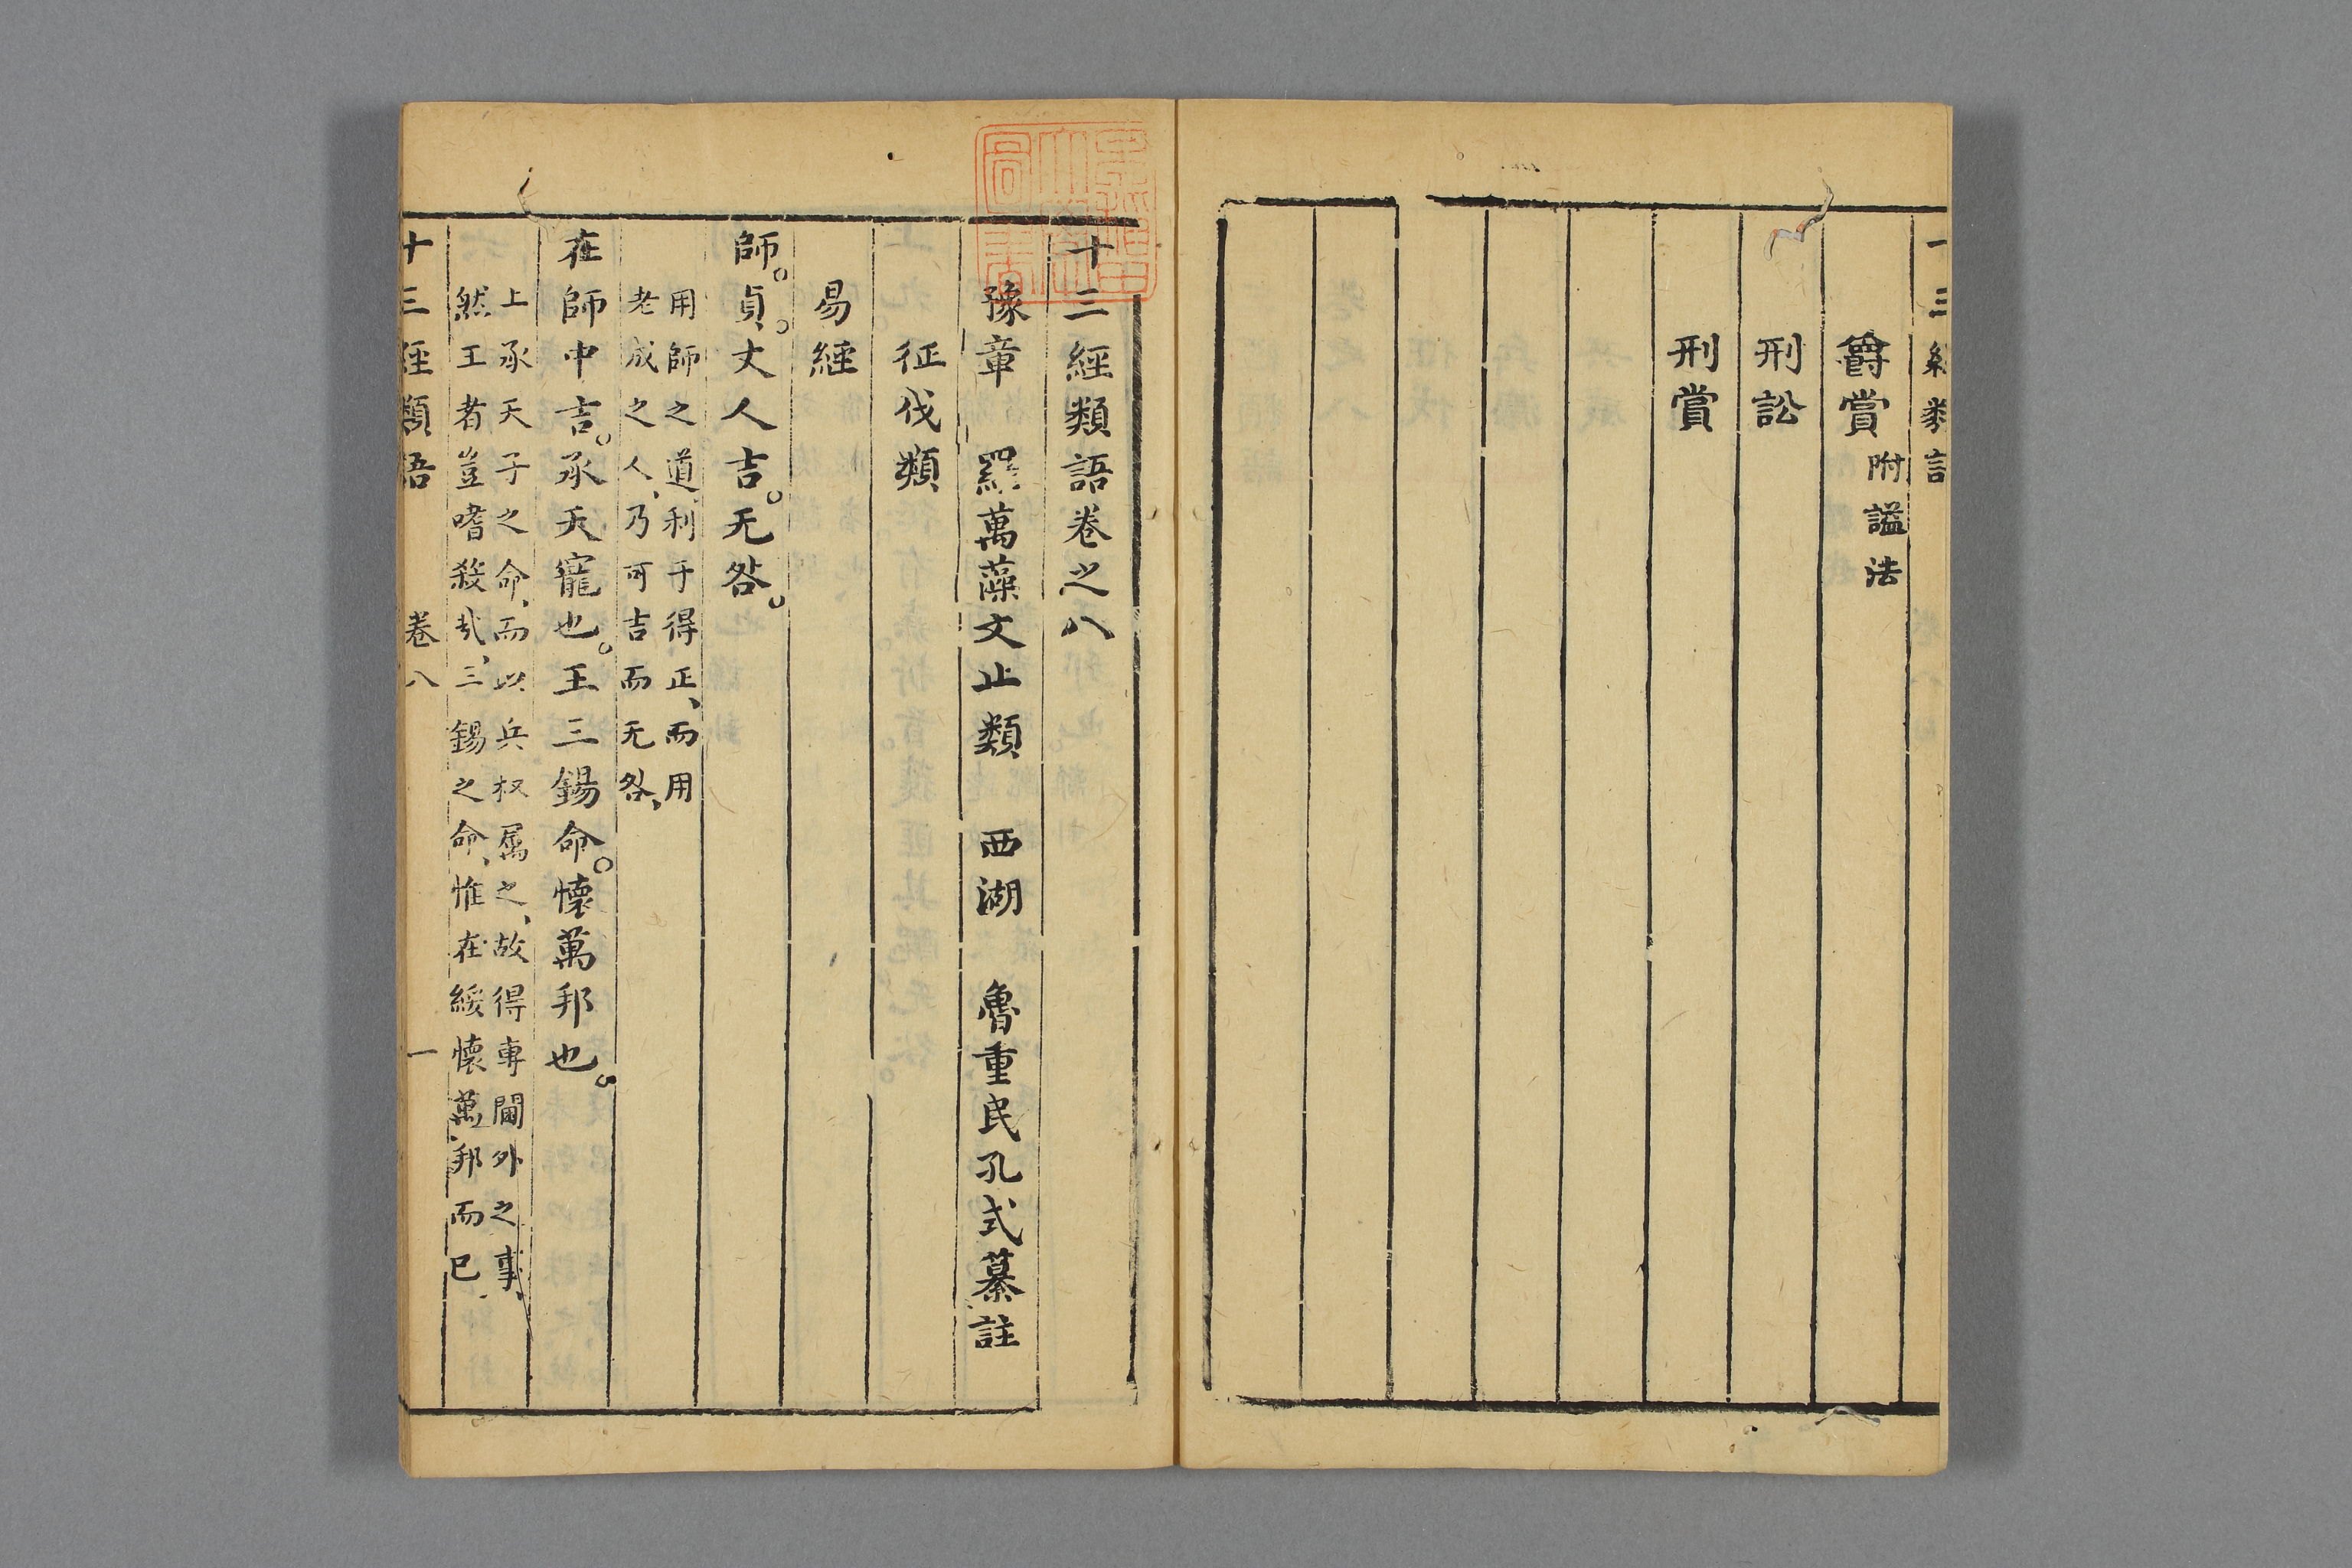 十三經類語
爵賞附謚法
刑訟
刑賞
十三經類語卷之八
豫章 羅萬藻文止類 西湖 魯重民孔式纂註
征伐類
易經
師。貞。丈人吉。无咎。
用師之道、利于得正、而用
老成之人、乃可吉而无咎、
在師中吉。承天寵也。王三錫命。懷萬邦也。
上承天子之命、而以兵权属之、故得専閫外之事、
然王者豈嗜殺㢤、三錫之命、惟在綏懷萬邦而已
十三經類語 卷八 一